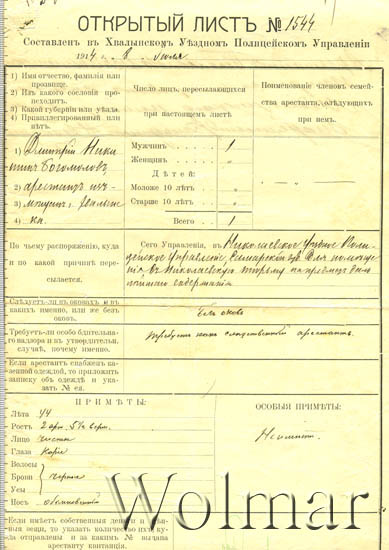 ОТКРЫТЫЙ ЛИСТЪ № 1544
Составленъ въ Хвалынскомъ Уѣздномъ Полицейскомъ Управленіи
1914 г. 8 июля
1) Имя отчество, фамилія или
прозвище.
2) Изъ какого сословія про-
исходитъ.
3) Какой губерніи или уѣзда.
4) Привиллегированный или
нѣтъ.
Число лицъ, пересылающихся
при настоящемъ листѣ
Наименованіе членовъ семей-
ства арестанта, слѣдующихъ
при немъ.
1) Дмитрій Ники
тинъ Богомоловъ
2) арестантъ изъ
3) мѣщанъ, Хвалынс
4) ка.
Мужчинъ 1
Женщинъ „
Дѣтей:
Моложе 10 лѣтъ „
Старше 10 лѣтъ „
Всего 1
„ „
По чьему распоряженію, куда
и по какой причинѣ пере-
сылается.
Сего Управленія, въ Николаевское Уѣздное Поли-
цейское Управленіе, Самарской губ. Для помѣще
нія въ Николаевскую тюрьму на предметъ
содержанія
Слѣдуетъ ли въ оковахъ и въ
какихъ именно, или же безъ
оковъ.
Безъ оковъ
Требуетъ ли особо бдительна-
го надзора и въ утвердительн.
случаѣ, почему именно.
Требуетъ какъ слѣдственный арестантъ.
Если арестантъ снабженъ ка-
зенной одеждой, то приложить
записку объ одеждѣ и ука-
зать № ея.
ПРИМѢТЫ:
Лѣта 44
Ростъ 2 арш. 5½ верш.
Лицо чистое
Глаза карие
Волосы
Брови черные
Усы
Носъ обыкновенный
ОСОБЫЯ ПРИМѢТЫ:
Не имѣетъ.
Если имѣетъ собственныя деньги и цѣн-
ныя вещи, то указать количество ихъ, куда
отправлены и за какимъ № выдана
арестанту квитанція.
Wolmar